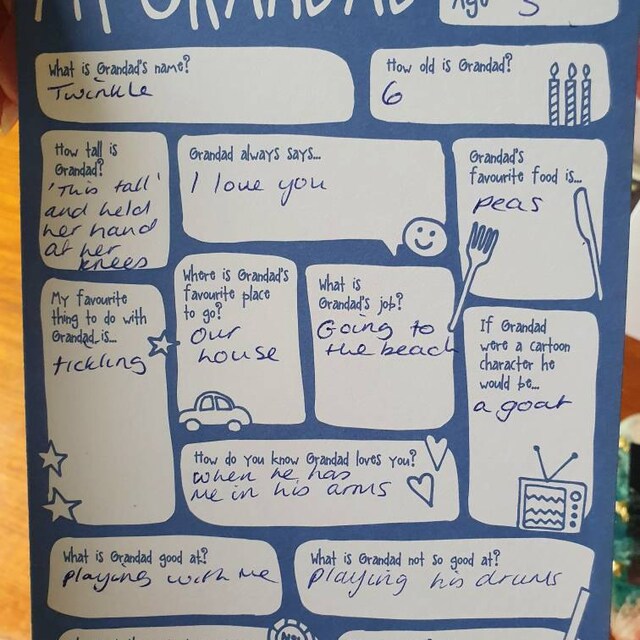 MY GRANDAD
Age 3
What is Grandad's name?
Twinkle
How old is Grandad?
6
How tall is
Grandad?
'This tall'
and held
her hand
at her
knees
Grandad always says...
I love you
Grandad's
favourite food is...
peas
My favourite
thing to do with
Grandad is...
tickling
Where is Grandad's
favourite place
to go?
Our
house
What is
Grandad's job?
Going to
the beach
If Grandad
were a cartoon
character he
would be...
a goat
How do you know Grandad loves you?
when he has
me in his arms
What is Grandad good at?
playing with me
What is Grandad not so good at?
playing his drums